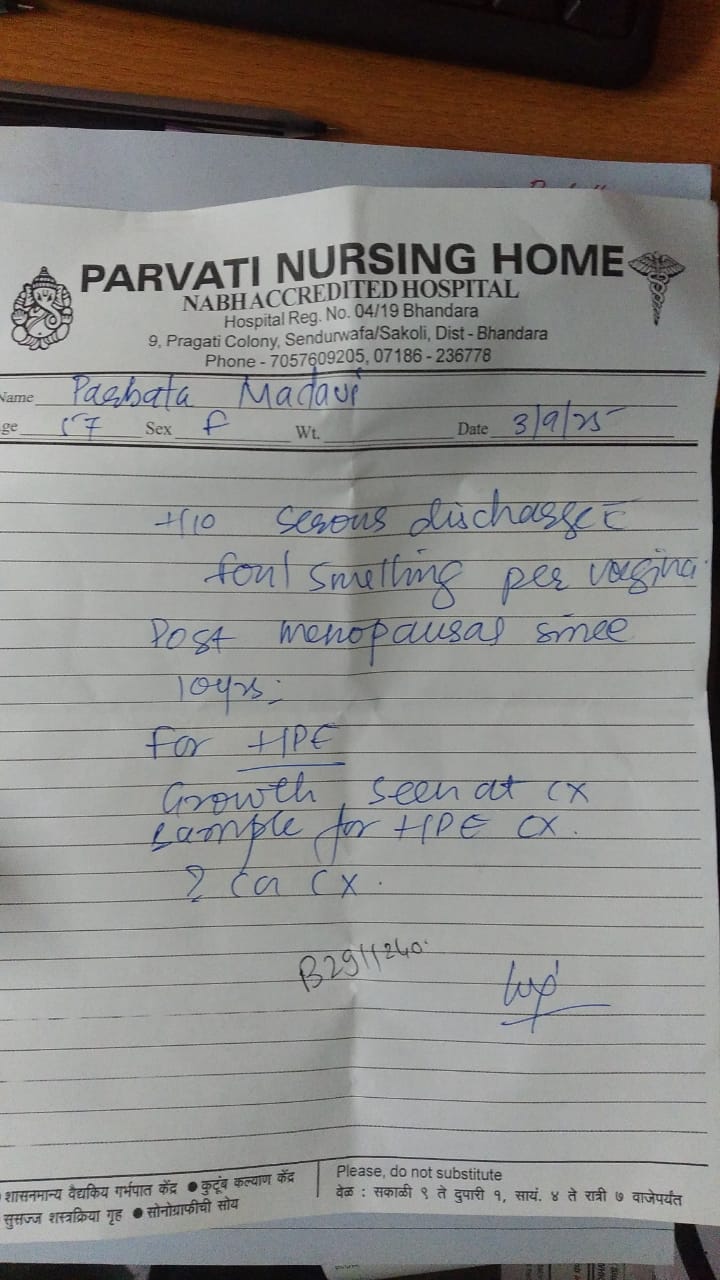 PARVATI NURSING HOME
NABH ACCREDITED HOSPITAL
Hospital Reg. No. 04/19 Bhandara
9, Pragati Colony, Sendurwafa/Sakoli, Dist - Bhandara
Phone - 7057609205, 07186 - 236778
Name Parbata Madavi
ge 57 Sex F Wt. Date 3/9/25
H/O serous discharge c̄
foul smelling per vagina
Post menopausal since
10yrs.
For HPE
Growth seen at CX
sample for HPE CX.
? Ca CX.
B2911240.
शासनमान्य वैद्यकिय गर्भपात केंद्र ● कुटूंब कल्याण केंद्र
सुसज्ज शस्त्रक्रिया गृह ● सोनोग्राफीची सोय
Please, do not substitute
वेळ : सकाळी ९ ते दुपारी १, सायं. ४ ते रात्री ७ वाजेपर्यंत